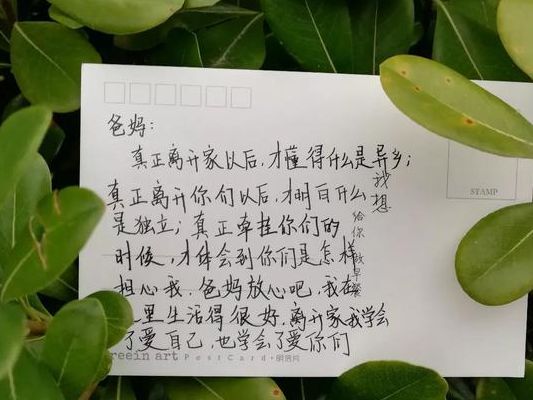 爸妈:
真正离开家以后,才懂得什么是异乡;
真正离开你们以后,才明白什么
是独立;真正牵挂你们的
时候,才体会到你们是怎样
担心我.爸妈放心吧,我在
里生活得很好.离开家我学会
了爱自己,也学会了爱你们
我想
给你做早餐
STAMP
reein art PostCard·明信片